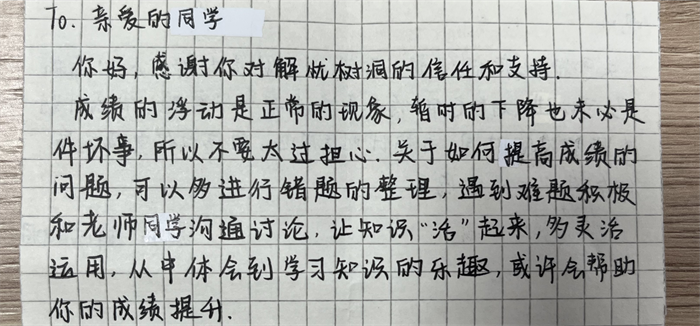 To. 亲爱的同学
你好,感谢你对解忧树洞的信任和支持.
成绩的浮动是正常的现象,暂时的下降也未必是
件坏事,所以不要太过担心.关于如何提高成绩的
问题,可以多进行错题的整理,遇到难题积极
和老师同学沟通讨论,让知识“活”起来,多灵活
运用,从中体会到学习知识的乐趣,或许会帮助
你的成绩提升.